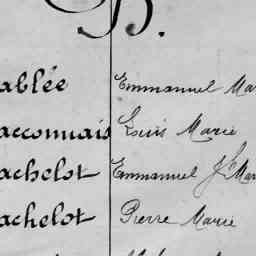 B.
ablée Emmanuel Mar
acconnais Louis Marie
achelot Emmanuel Jh Mar
achelot Pierre Marie